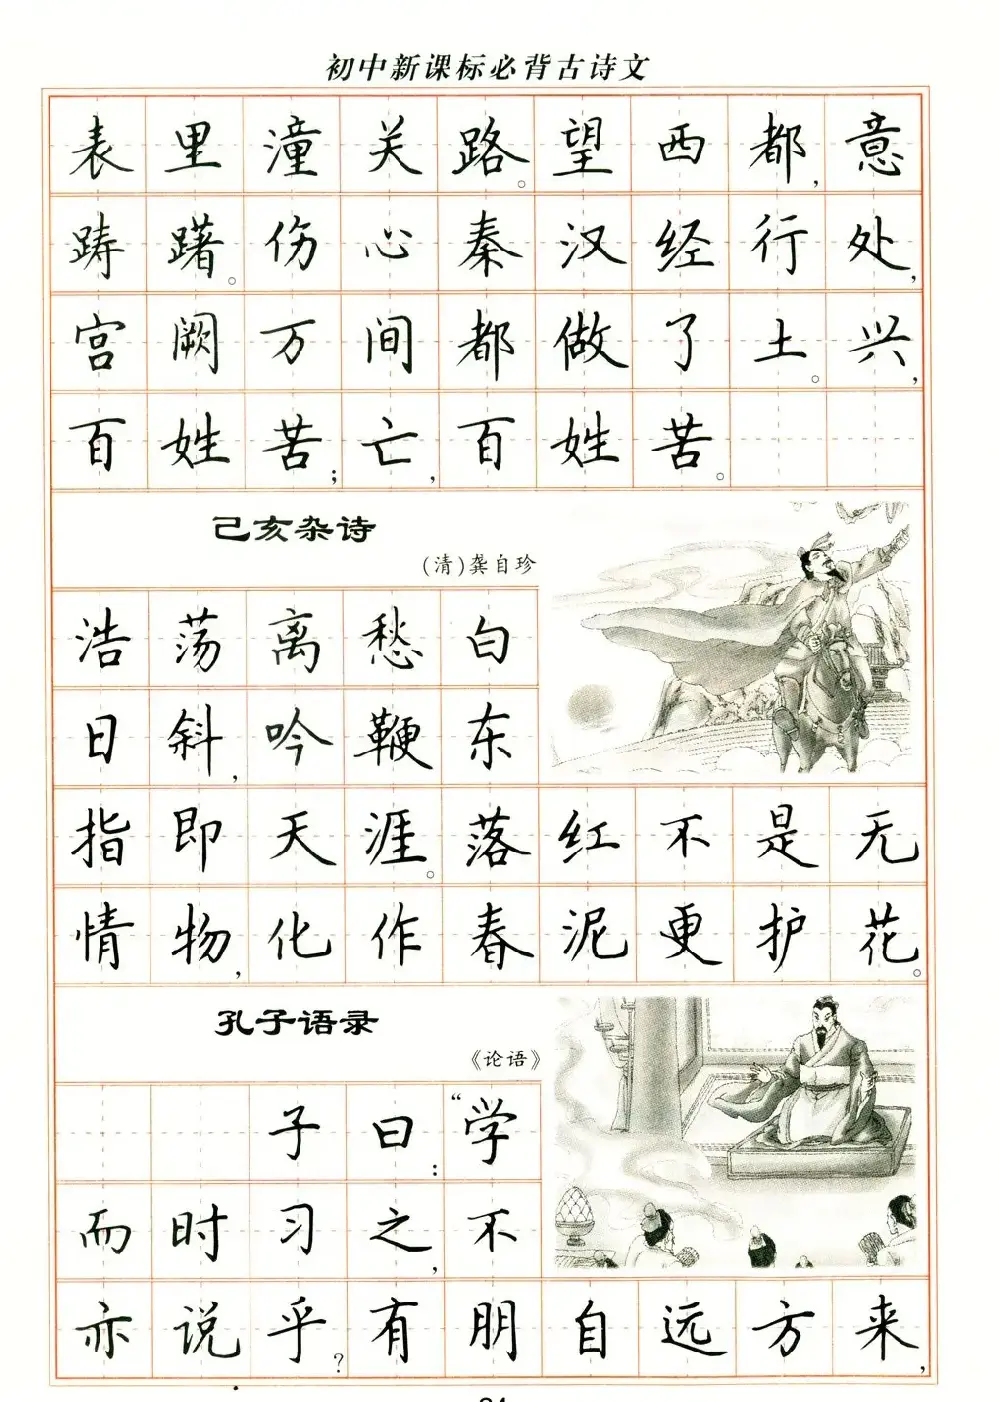 初中新课标必背古诗文
表里潼关路。望西都,意
踌躇。伤心秦汉经行处,
宫阙万间都做了土。兴,
百姓苦;亡,百姓苦。
己亥杂诗
(清)龚自珍
浩荡离愁白
日斜,吟鞭东
指即天涯。落红不是无
情物,化作春泥更护花。
孔子语录
《论语》
子曰:“学
而时习之,不
亦说乎?有朋自远方来,